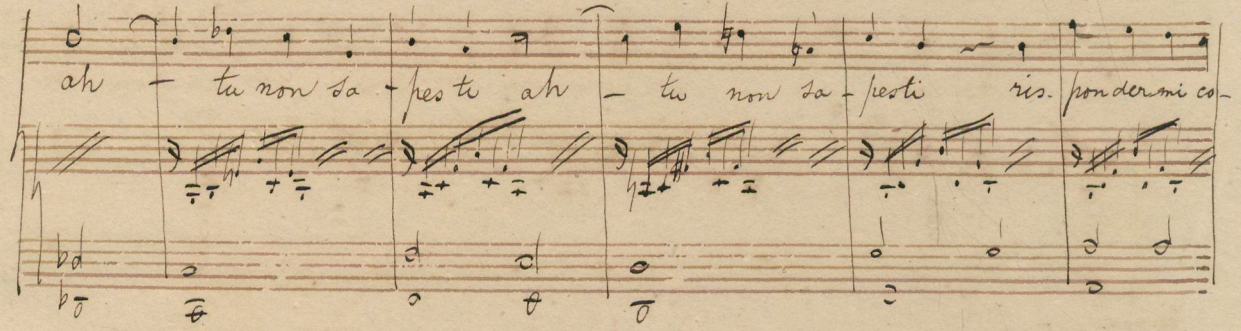 ah – tu non sa - pesti ah – tu non sa - pesti ris- ponder mi co-